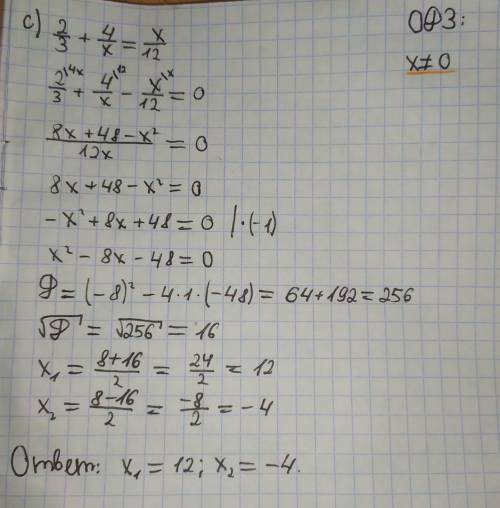 c) 2/3 + 4/x = x/12
ОДЗ:
x ≠ 0
2/3 \4x + 4/x \12 − x/12 \x = 0
(8x + 48 − x²)/12x = 0
8x + 48 − x² = 0
−x² + 8x + 48 = 0 | · (−1)
x² − 8x − 48 = 0
D = (−8)² − 4·1·(−48) = 64 + 192 = 256
√D = √256 = 16
x₁ = (8+16)/2 = 24/2 = 12
x₂ = (8−16)/2 = −8/2 = −4
Ответ: x₁ = 12; x₂ = −4.